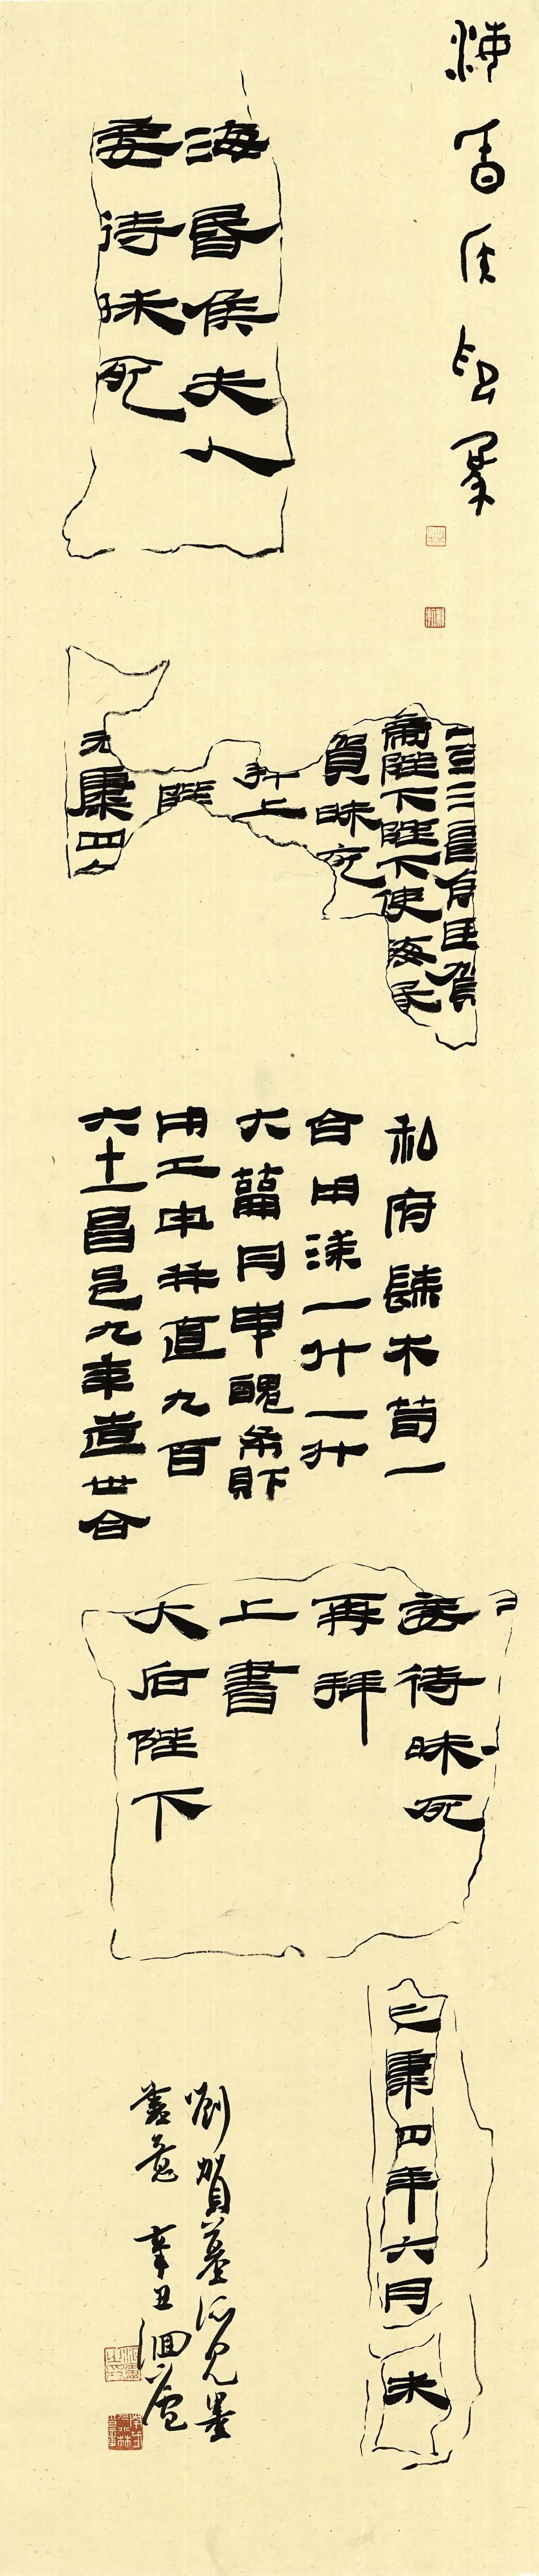 海昏侯墨
海昏侯夫人
妾待昧死
臣賀
陛下陛下使海昏
賀昧死
拜上
陛
元康四
私府髹木笥一
合用漆一斗一升
六籥丹臾醜布財
用工牢并直九百
六十一昌邑九年造廿合
妾待昧死
再拜
上書
大后陛下
元康四年六月
未
劉賀墓所見墨
書意 辛丑洄廬